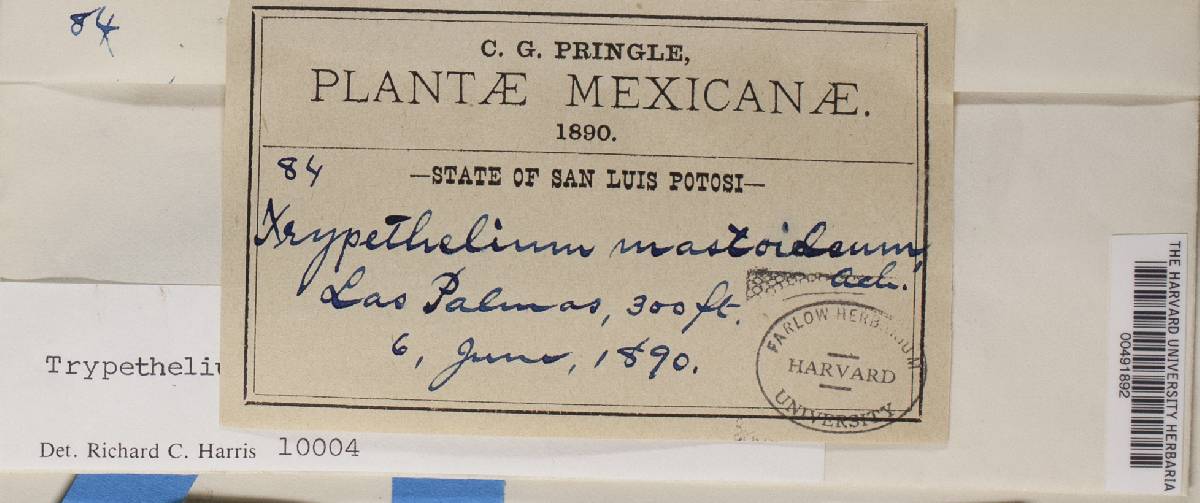 84
C. G. PRINGLE,
PLANTÆ MEXICANÆ.
1890.
84
—STATE OF SAN LUIS POTOSI—
Trypethelium mastoideum,
Ach.
Las Palmas, 300 ft.
6, June, 1890.
FARLOW HERBARIUM
HARVARD
UNIVERSITY
Trypetheliu
Det. Richard C. Harris 10004
THE HARVARD UNIVERSITY HERBARIA
00491892